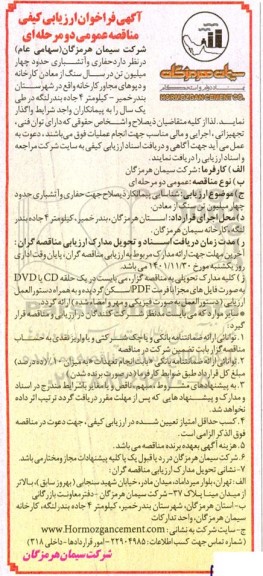 آگهی فراخوان ارزیابی کیفی
مناقصه عمومی دو مرحله ای
شرکت سیمان هرمزگان (سهامی عام)
در نظر دارد حفاری و آتشباری حدود چهار
میلیون تن در سال سنگ از معادن کارخانه
و دپوهای مجاور کارخانه واقع در شهرستان
بندر خمیر - کیلومتر ۴ جاده بندر لنگه در طی
یک سال را به پیمانکاران واجد شرایط واگذار
سیمان هرمزگان
HORMOZGAN CEMENT CO.
نماید. لذا از کلیه متقاضیان ذیصلاح و اشخاص حقوقی که دارای توان فنی،
تجهیزاتی، اجرایی و مالی مناسب جهت انجام عملیات فوق می باشند، دعوت به
عمل می آید جهت آگاهی و دریافت اسناد ارزیابی کیفی به سایت شرکت مراجعه
و اسناد ارزیابی را دریافت نمایند.
الف) کارفرما: شرکت سیمان هرمزگان
ب) نوع مناقصه: عمومی دو مرحله ای
ج) موضوع ارزیابی: شناسایی پیمانکار ذیصلاح جهت حفاری و آتشباری حدود
چهار میلیون تن سنگ از معادن
د) محل اجرای قرارداد: استان هرمزگان، بندر خمیر، کیلومتر ۴ جاده بندر
لنگه، کارخانه سیمان هرمزگان.
ر) مدت زمان دریافت اسناد و تحویل مدارک ارزیابی مناقصه گران:
آخرین مهلت جهت ارائه مدارک مربوط به ارزیابی مناقصه گران، پایان وقت اداری
روز یکشنبه مورخ ۱۴۰۱/۱۱/۳۰ می باشد.
ز) کلیه مدارک تحویلی به مناقصه گزار، می بایست در یک حلقه CD یا DVD
به صورت فایل های مجزا با فرمت PDF اسکن گردیده و به همراه دستورالعمل
ارزیابی (دستورالعمل به صورت فیزیکی و مهر و امضاء شده) ارائه گردد.
* سایر موارد که می بایست مدنظر شرکت کنندگان در ارزیابی و مناقصه قرار
گیرد:
۱. توانائی ارائه ضمانتنامه بانکی و یا چک شرکتی و یا واریز نقدی به حساب
مناقصه گزار بابت تضمین شرکت در مناقصه
۲. توانائی ارائه ضمانتنامه بانکی «بابت انجام تعهدات» به میزان ۱۰٪ (ده درصد)
مبلغ کل قرارداد طبق ضوابط کارفرما (در صورت برنده شدن)
۳. به پیشنهادهای مشروط، مبهم، ناقص و یا مغایر با شرایط مندرج در اسناد
و مدارک و پیشنهاد هایی که پس از مهلت مقرر دریافت گردد ترتیب اثر داده
نخواهد شد.
۴. کسب حداقل امتیاز تعیین شده در ارزیابی کیفی، جهت دعوت در مناقصه
فوق الذکر الزامی است.
۵. هزینه آگهی بعهده برنده مناقصه می باشد.
۶. شرکت سیمان هرمزگان در رد یا قبول یک یا کلیه پیشنهادات مجاز و مختار می باشد.
۷- نشانی تحویل مدارک ارزیابی مناقصه گران:
الف: تهران، بلوار میرداماد، میدان مادر، خیابان شهید سنجابی (بهروز سابق)، بالاتر
از میدان مینا، پلاک ۳۷- شرکت سیمان هرمزگان - دفتر معاونت بازرگانی
ب: استان هرمزگان، شهرستان بندر خمیر، کیلومتر ۴ جاده بندر لنگه، کارخانه
سیمان هرمزگان، واحد تدارکات
ج- سایت شرکت به نشانی: www.Hormozgancement.com
(شماره تماس جهت کسب اطلاعات: ۲۲۹۰۴۹۸۵-امور قراردادها - داخلی ۳۱۸)
شرکت سیمان هرمزگان